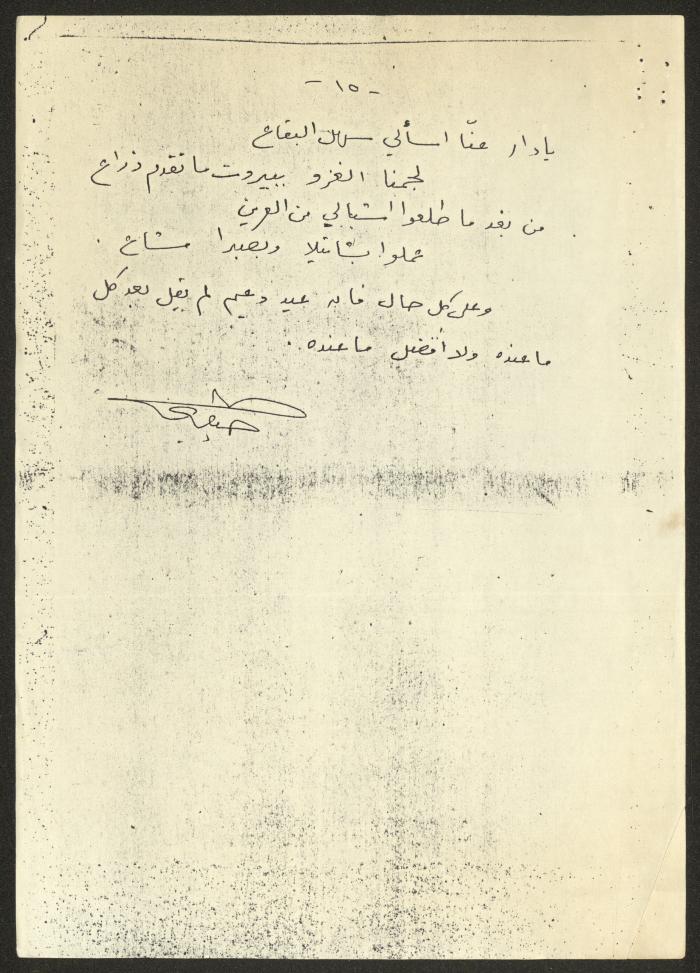 - ١٥ -
يا دار عنّا اسألي سهل البقاع
لجمنا الغزو ببيروت ما تقدم ذراع
من بعد ما طلعوا اشبالي من العرين
عملوا بشاتيلا وبصبرا مشاع.
وعلى كل حال فابو عيد دعيم لم يقل بعد كل
ما عنده ولا أفضل ما عنده..